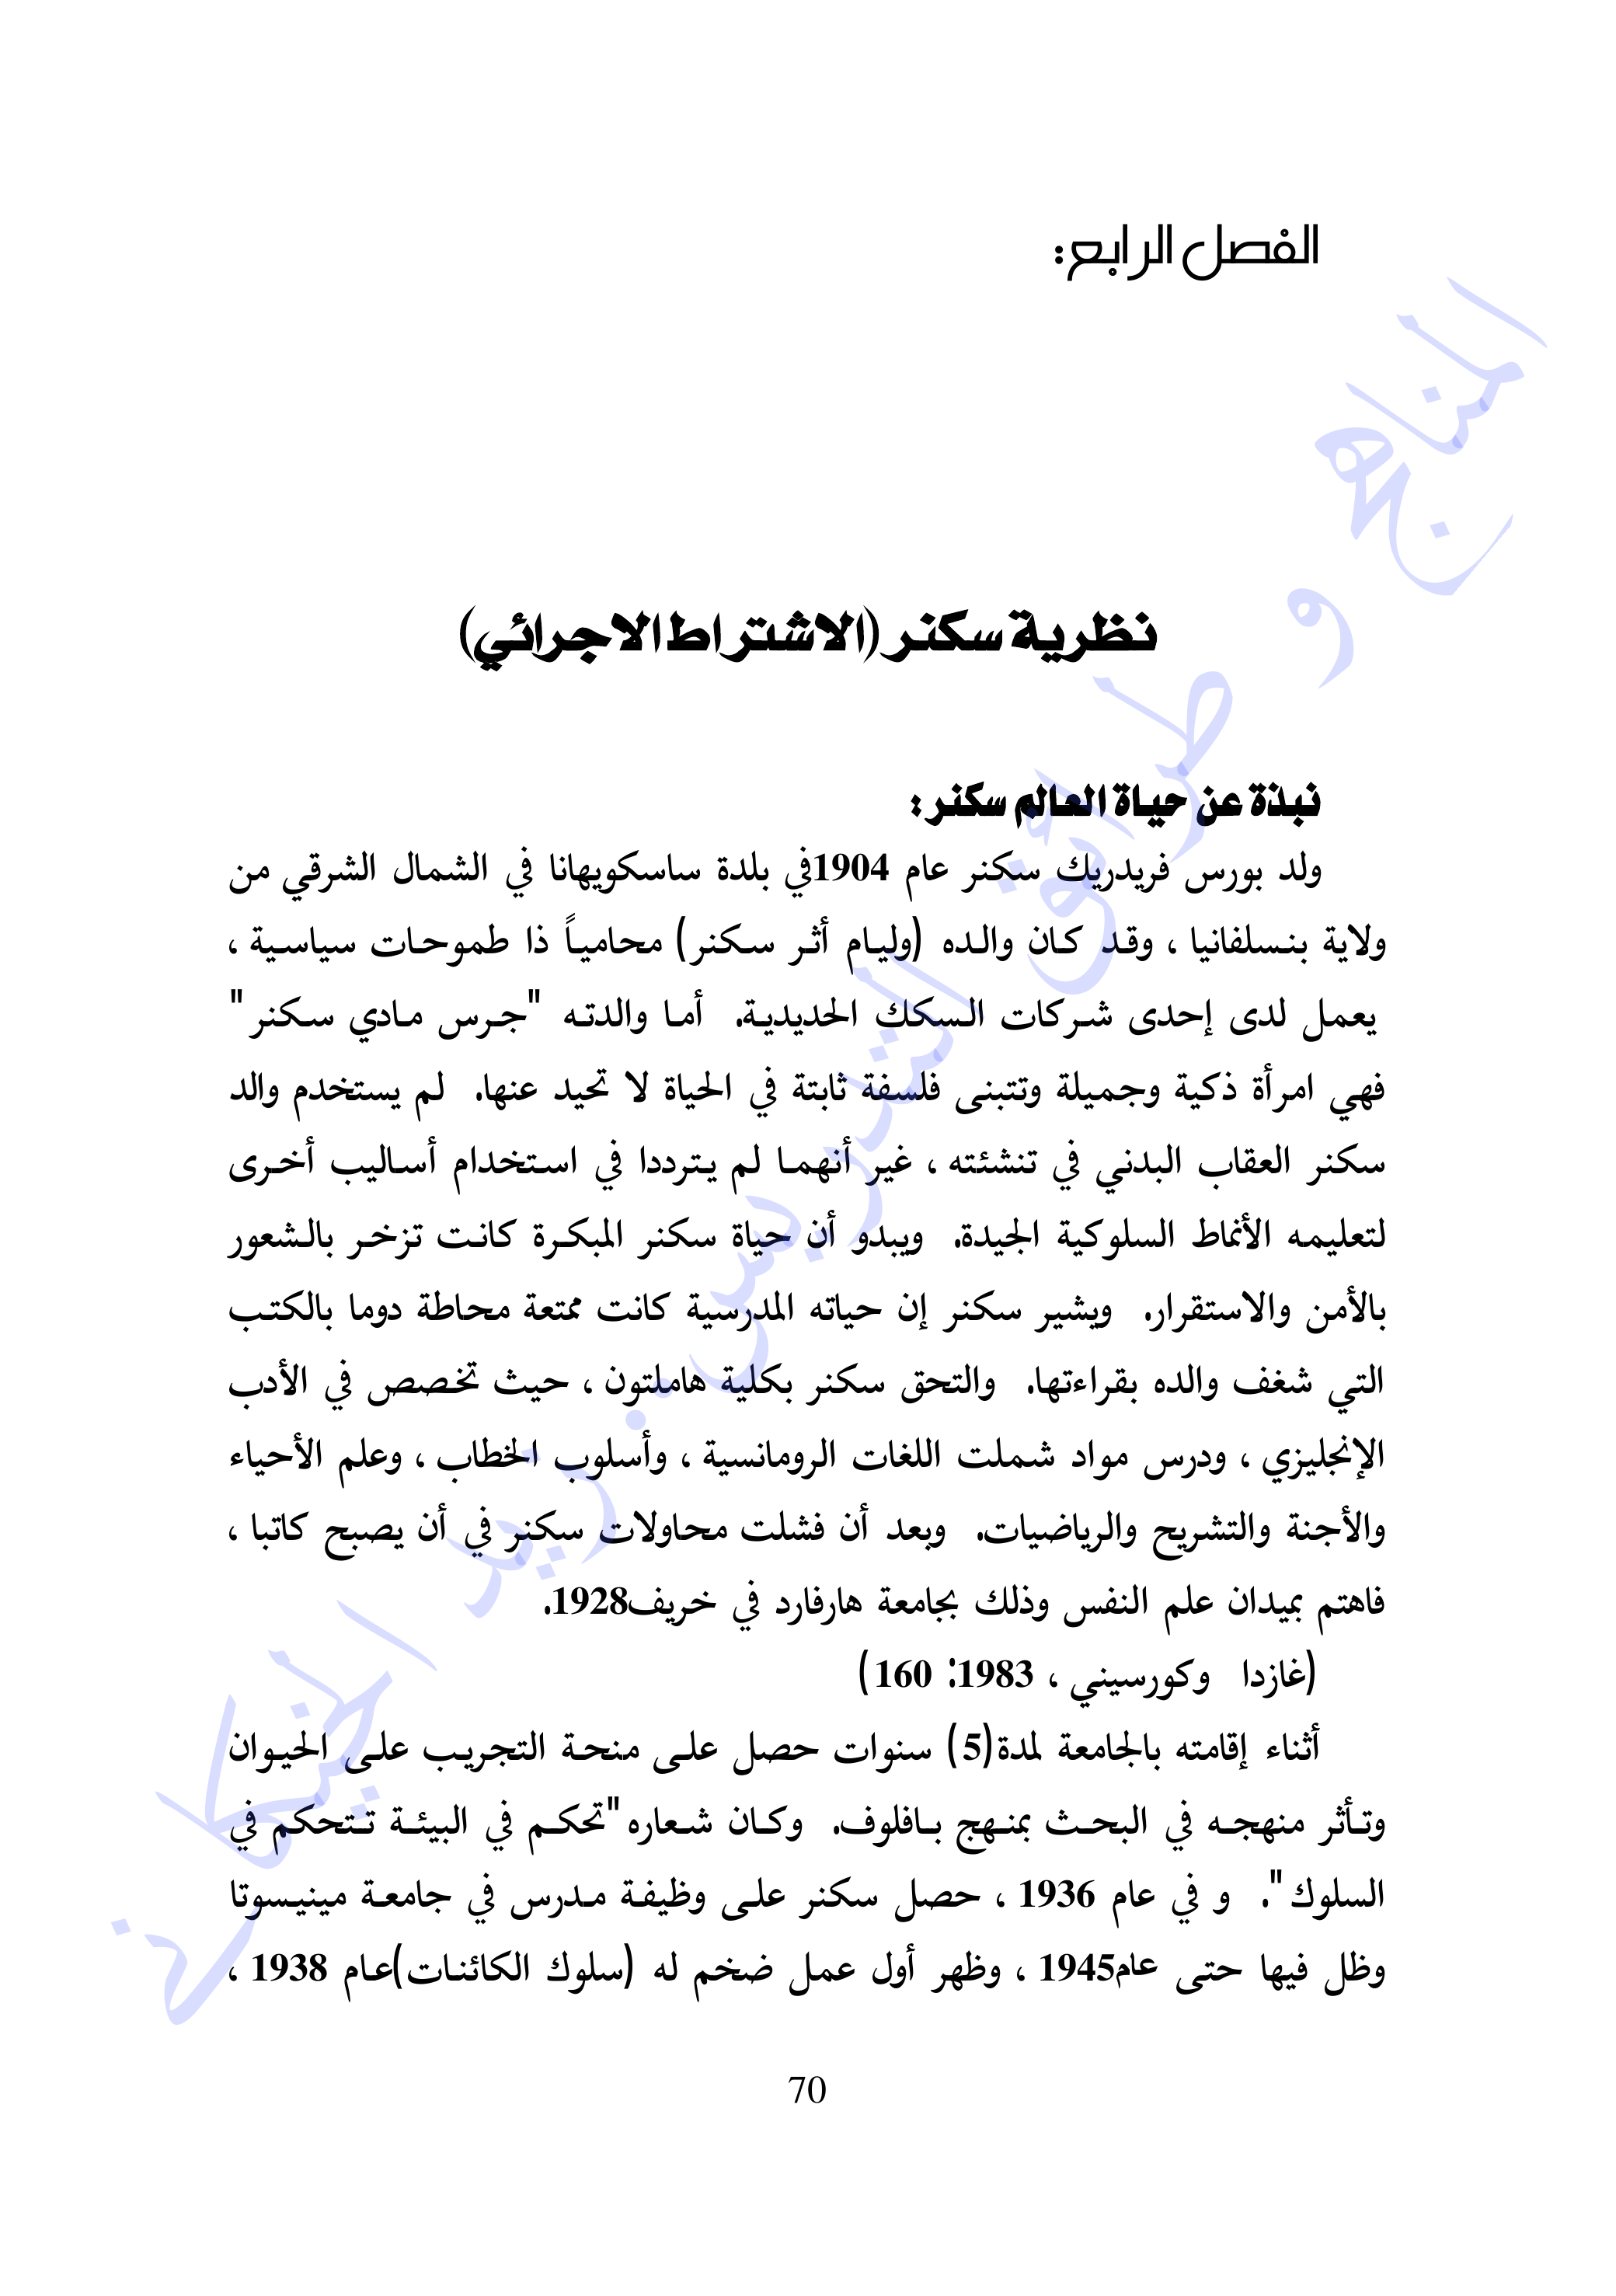 الفصل الرابع:
نظرية سكنر (الاشتراط الاجرائي)
نبذة عن حياة العالم سكنر:
ولد بورس فريدريك سكنر عام 1904في بلدة ساسكويهانا في الشمال الشرقي من
ولاية بنسلفانيا ، وقد كان والده (وليام أثر سكنر) محامياً ذا طموحات سياسية ،
يعمل لدى إحدى شركات السكك الحديدية. أما والدته "جرس مادي سكنر"
فهي امرأة ذكية وجميلة وتتبنى فلسفة ثابتة في الحياة لا تحيد عنها. لم يستخدم والد
سكنر العقاب البدني في تنشئته ، غير أنهما لم يترددا في استخدام أساليب أخرى
لتعليمه الأنماط السلوكية الجيدة. ويبدو أن حياة سكنر المبكرة كانت تزخر بالشعور
بالأمن والاستقرار. ويشير سكنر إن حياته المدرسية كانت ممتعة محاطة دوما بالكتب
التي شغف والده بقراءتها. والتحق سكنر بكلية هاملتون ، حيث تخصص في الأدب
الإنجليزي ، ودرس مواد شملت اللغات الرومانسية ، وأسلوب الخطاب ، وعلم الأحياء
والأجنة والتشريح والرياضيات. وبعد أن فشلت محاولات سكنر في أن يصبح كاتبا ،
فاهتم بميدان علم النفس وذلك بجامعة هارفارد في خريف1928.
(غازدا وكورسيني ، 1983: 160)
أثناء إقامته بالجامعة لمدة(5) سنوات حصل على منحة التجريب على الحيوان
وتأثر منهجه في البحث بمنهج بافلوف. وكان شعاره"تحكم في البيئة تتحكم في
السلوك". و في عام 1936 ، حصل سكنر على وظيفة مدرس في جامعة مينيسوتا
وظل فيها حتى عام1945 ، وظهر أول عمل ضخم له (سلوك الكائنات)عام 1938 ،
70